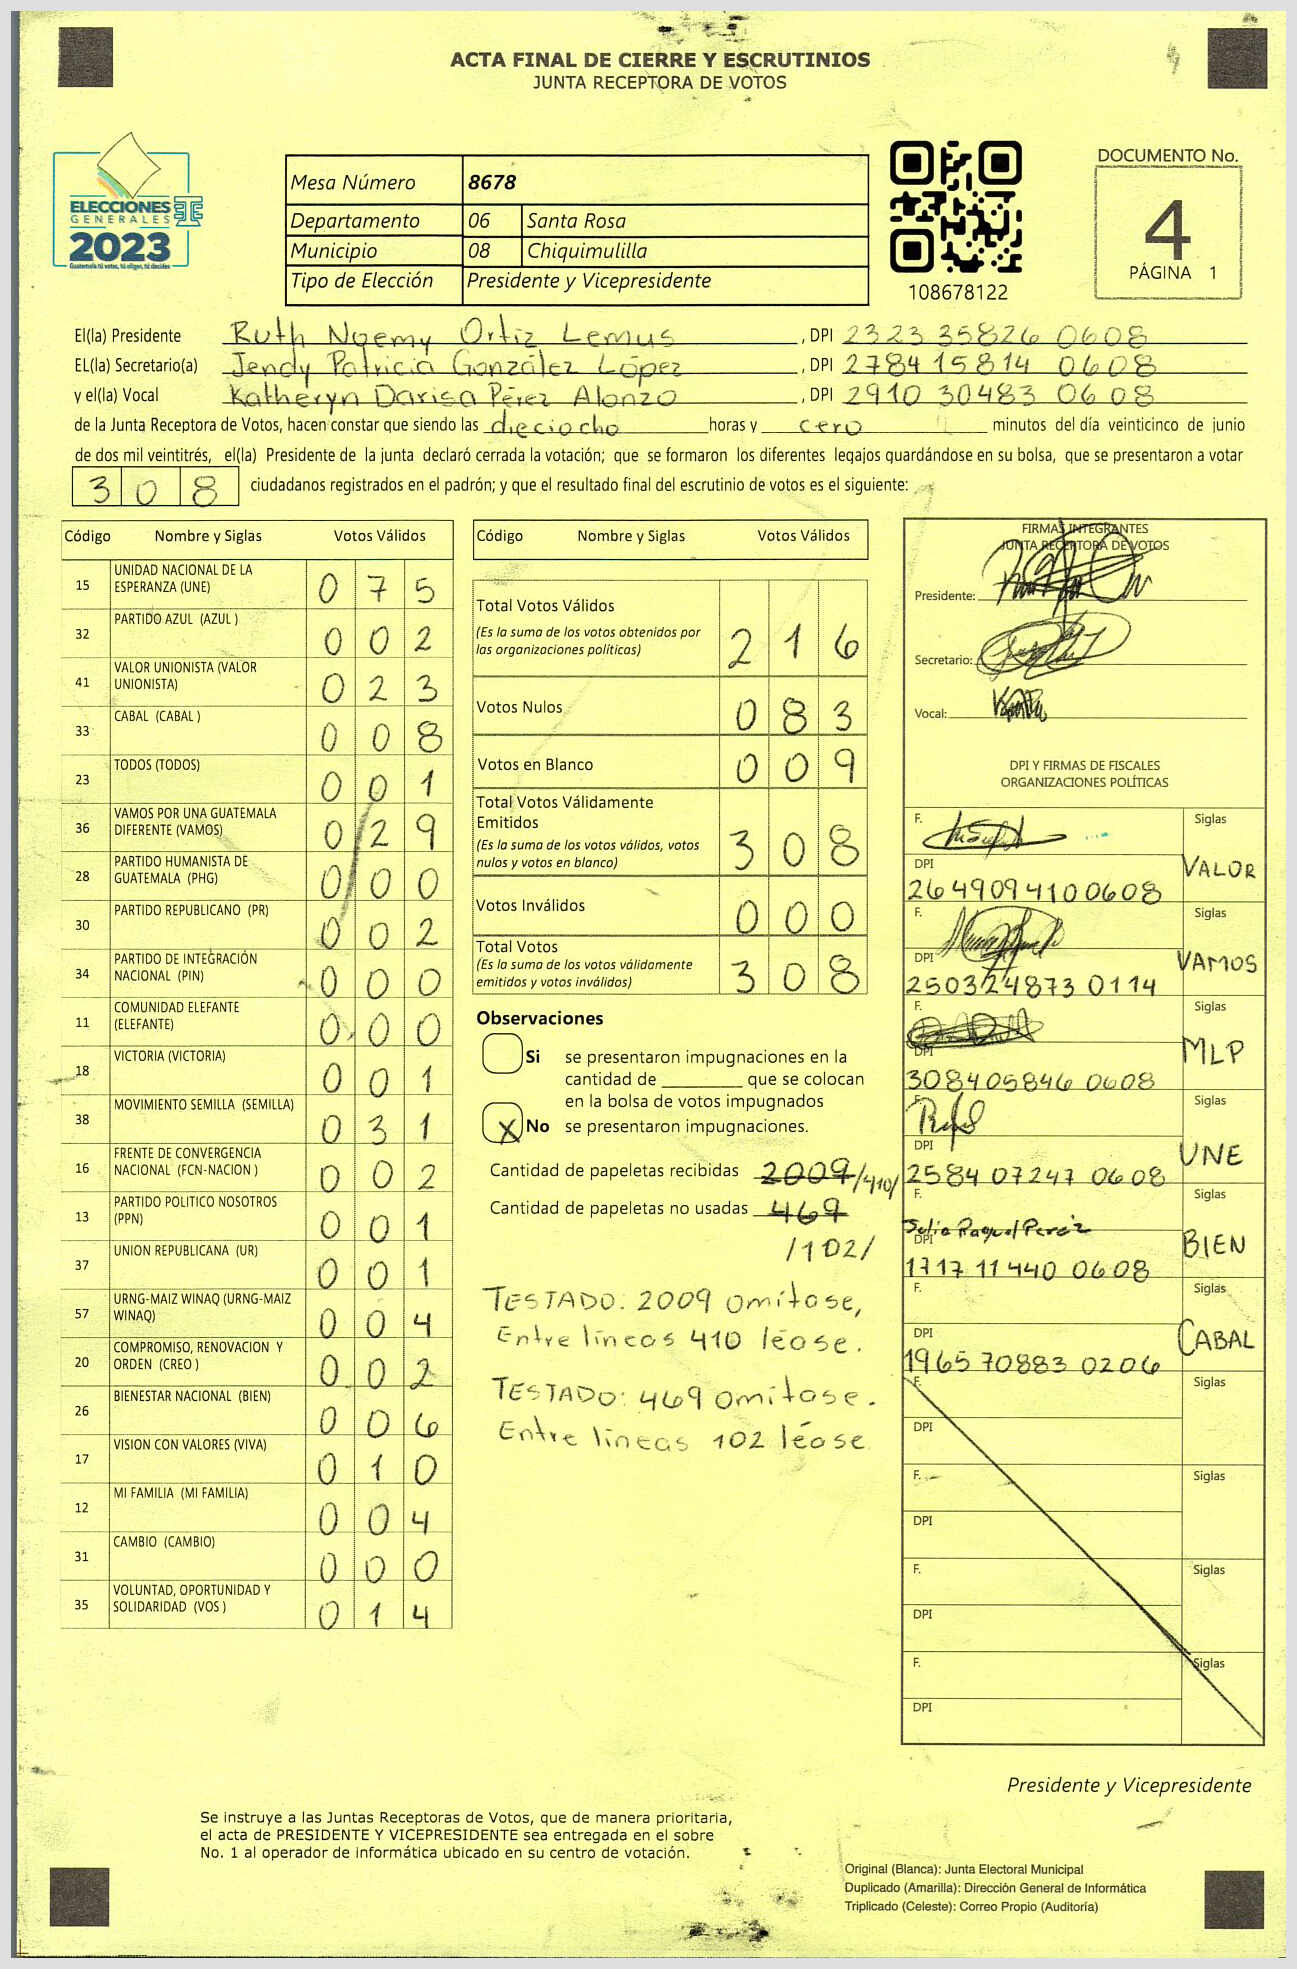 ACTA FINAL DE CIERRE Y ESCRUTINIOS
JUNTA RECEPTORA DE VOTOS
ELECCIONES
GENERALES
2023
Guatemala tú votas, tú eliges, tú decides
Mesa Número 8678
Departamento 06 Santa Rosa
Municipio 08 Chiquimulilla
Tipo de Elección Presidente y Vicepresidente
108678122
DOCUMENTO No.
4
PÁGINA 1
El(la) Presidente Ruth Noemy Ortiz Lemus, DPI 2323 35826 0608
EL(la) Secretario(a) Jendy Patricia González López, DPI 2784 15814 0608
y el(la) Vocal Katheryn Darisa Pérez Alonzo, DPI 2910 30483 0608
de la Junta Receptora de Votos, hacen constar que siendo las dieciocho horas y cero minutos del día veinticinco de junio
de dos mil veintitrés, el(la) Presidente de la junta declaró cerrada la votación; que se formaron los diferentes legajos guardándose en su bolsa, que se presentaron a votar
308 ciudadanos registrados en el padrón; y que el resultado final del escrutinio de votos es el siguiente:
Código Nombre y Siglas Votos Válidos
15 UNIDAD NACIONAL DE LA ESPERANZA (UNE) 075
32 PARTIDO AZUL (AZUL ) 002
41 VALOR UNIONISTA (VALOR UNIONISTA) 023
33 CABAL (CABAL ) 008
23 TODOS (TODOS) 001
36 VAMOS POR UNA GUATEMALA DIFERENTE (VAMOS) 029
28 PARTIDO HUMANISTA DE GUATEMALA (PHG) 000
30 PARTIDO REPUBLICANO (PR) 002
34 PARTIDO DE INTEGRACIÓN NACIONAL (PIN) 000
11 COMUNIDAD ELEFANTE (ELEFANTE) 000
18 VICTORIA (VICTORIA) 001
38 MOVIMIENTO SEMILLA (SEMILLA) 031
16 FRENTE DE CONVERGENCIA NACIONAL (FCN-NACION ) 002
13 PARTIDO POLITICO NOSOTROS (PPN) 001
37 UNION REPUBLICANA (UR) 001
57 URNG-MAIZ WINAQ (URNG-MAIZ WINAQ) 004
20 COMPROMISO, RENOVACION Y ORDEN (CREO ) 002
26 BIENESTAR NACIONAL (BIEN) 006
17 VISION CON VALORES (VIVA) 010
12 MI FAMILIA (MI FAMILIA) 004
31 CAMBIO (CAMBIO) 000
35 VOLUNTAD, OPORTUNIDAD Y SOLIDARIDAD (VOS ) 014
Código Nombre y Siglas Votos Válidos
Total Votos Válidos 216
(Es la suma de los votos obtenidos por
las organizaciones políticas)
Votos Nulos 083
Votos en Blanco 009
Total Votos Válidamente
Emitidos 308
(Es la suma de los votos válidos, votos
nulos y votos en blanco)
Votos Inválidos 000
Total Votos 308
(Es la suma de los votos válidamente
emitidos y votos inválidos)
Observaciones
Si se presentaron impugnaciones en la
cantidad de ________ que se colocan
en la bolsa de votos impugnados
X No se presentaron impugnaciones.
Cantidad de papeletas recibidas 2009 /410/
Cantidad de papeletas no usadas 469
/102/
TESTADO: 2009 omítase,
Entre líneas 410 léase.
TESTADO: 469 omítase.
Entre líneas 102 léase
FIRMAS INTEGRANTES
JUNTA RECEPTORA DE VOTOS
Presidente:
Secretario:
Vocal:
DPI Y FIRMAS DE FISCALES
ORGANIZACIONES POLÍTICAS
F. Siglas
DPI VALOR
2649094100608
F. Siglas
DPI VAMOS
250324873 0114
F. Siglas
DPI MLP
308405846 0608
F. Siglas
DPI UNE
2584 07247 0608
F. Siglas
Julia Raquel Peréz
DPI BIEN
1717 11440 0608
F. Siglas
DPI CABAL
1965 70883 0206
F. Siglas
DPI
F. Siglas
DPI
F. Siglas
DPI
F. Siglas
DPI
Presidente y Vicepresidente
Se instruye a las Juntas Receptoras de Votos, que de manera prioritaria,
el acta de PRESIDENTE Y VICEPRESIDENTE sea entregada en el sobre
No. 1 al operador de informática ubicado en su centro de votación.
Original (Blanca): Junta Electoral Municipal
Duplicado (Amarilla): Dirección General de Informática
Triplicado (Celeste): Correo Propio (Auditoría)